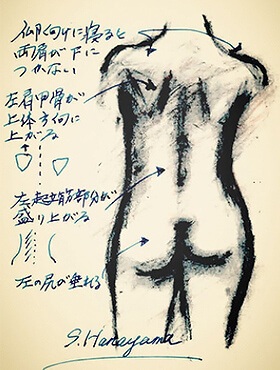 仰向けに寝ると
両肩が下に
つかない
左肩甲骨が
上体方向に
上がる
左起立筋部分が
盛り上がる
左の尻が垂れる
S. Hanayama